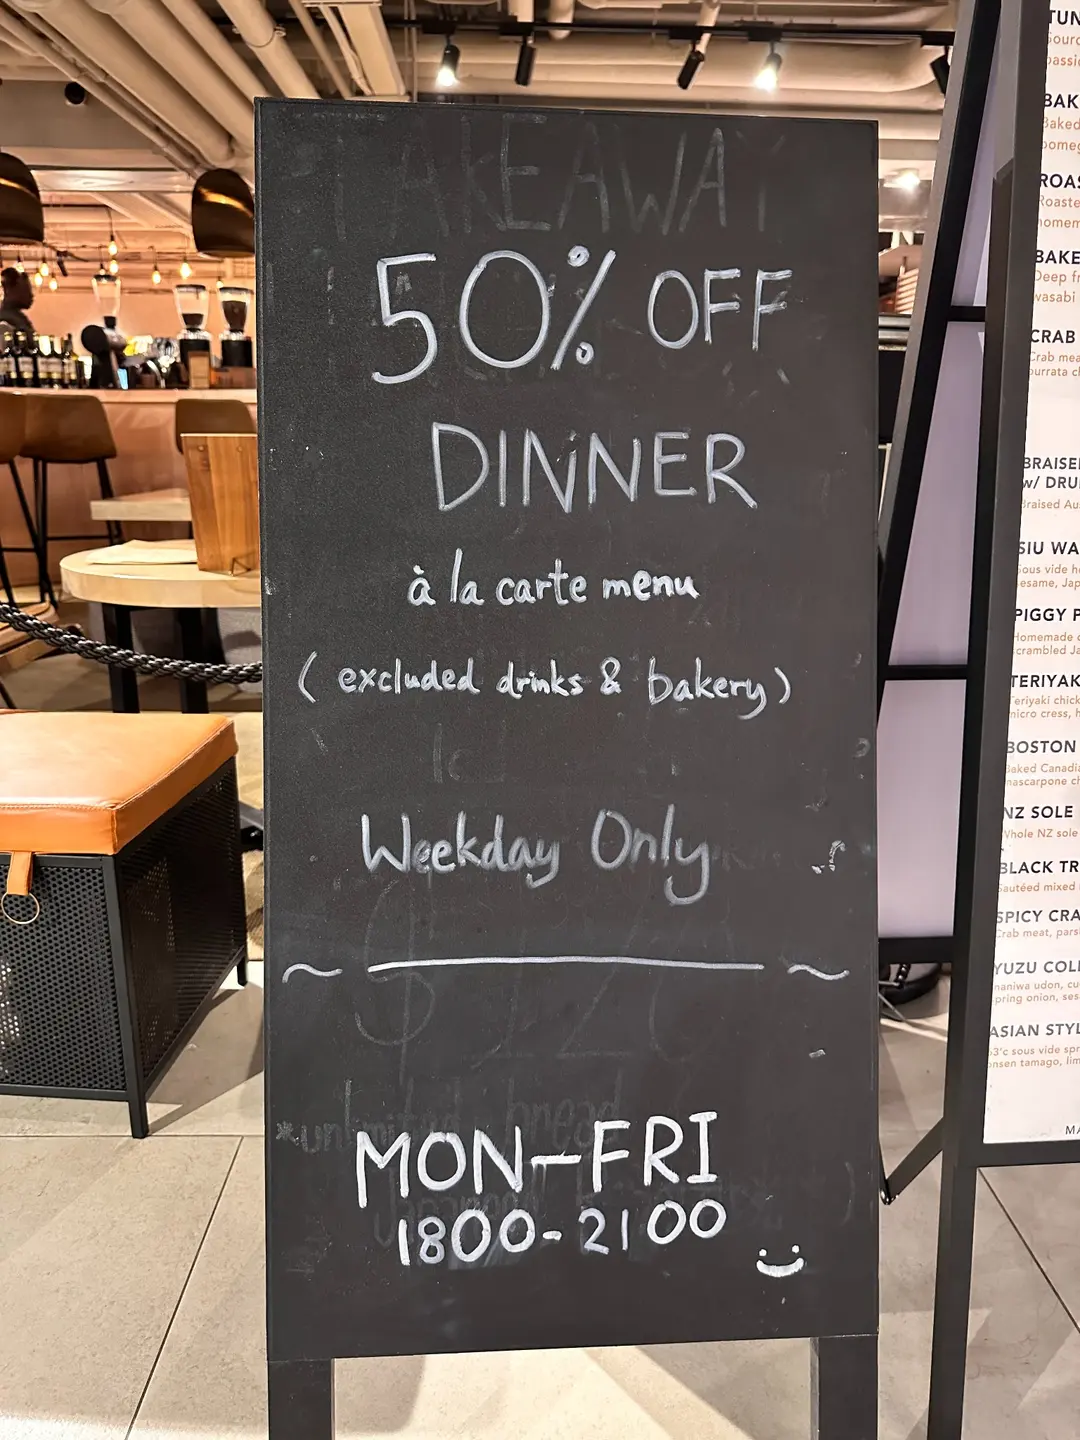 TAKEAWAY
50% OFF
DINNER
à la carte menu
(excluded drinks & bakery)
Weekday Only
~ — ~
MON-FRI
1800-2100
*unlimited bread
BAK
ROAS
Roaste
BAKE
Deep fr
wasabi
CRAB
Crab mea
burrata ch
BRAISE
w/ DRU
Braised Aus
SIU WA
sous vide
esame, Jap
PIGGY P
Homemade
scrambled Ja
TERIYAK
Teriyaki chick
micro cress, h
BOSTON
Baked Canadia
mascarpone ch
NZ SOLE
Whole NZ sole
BLACK TR
Sautéed mixed
SPICY CRA
Crab meat, pars
YUZU COL
naniwa udon, cu
pring onion, ses
ASIAN STYL
63'c sous vide spr
onsen tamago, lim
MA